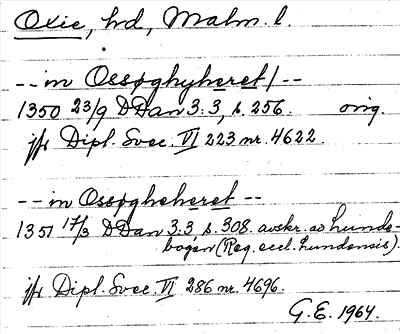 Oxie, hd, Malm. l.
-- in Ossøghyheret/--
1350 23/9 DDan 3:3, s. 256. orig.
jfr Dipl. Svec. VI 223 nr. 4622.
-- in Ossøgheheret --
1351 17/3 DDan 3:3 s. 308. avskr. av Lunde-
bogen (Reg. eccl. Lundensis).
jfr Dipl. Svec VI 286 nr. 4696.
G.E. 1964.